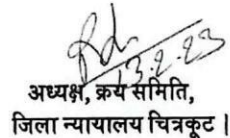 13.2.23
अध्यक्ष, क्रय समिति,
जिला न्यायालय चित्रकूट ।